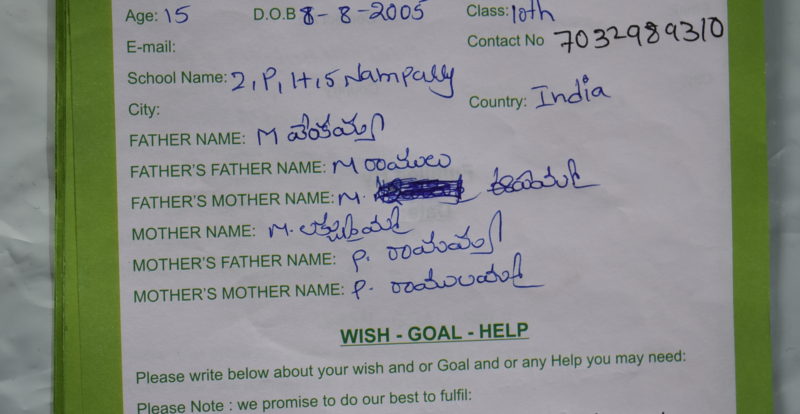 Age: 15 D.O.B 8-8-2005 Class: 10th
E-mail:
Contact No 7032989310
School Name: Z, P, H, S Nampally
City: Country: India
FATHER NAME: M
FATHER'S FATHER NAME: M రాములు
FATHER'S MOTHER NAME: M.
MOTHER NAME: M. లక్ష్మమ్మ
MOTHER'S FATHER NAME: P. రామయ్య
MOTHER'S MOTHER NAME: P. రాములమ్మ
WISH - GOAL - HELP
Please write below about your wish and or Goal and or any Help you may need:
Please Note : we promise to do our best to fulfil: